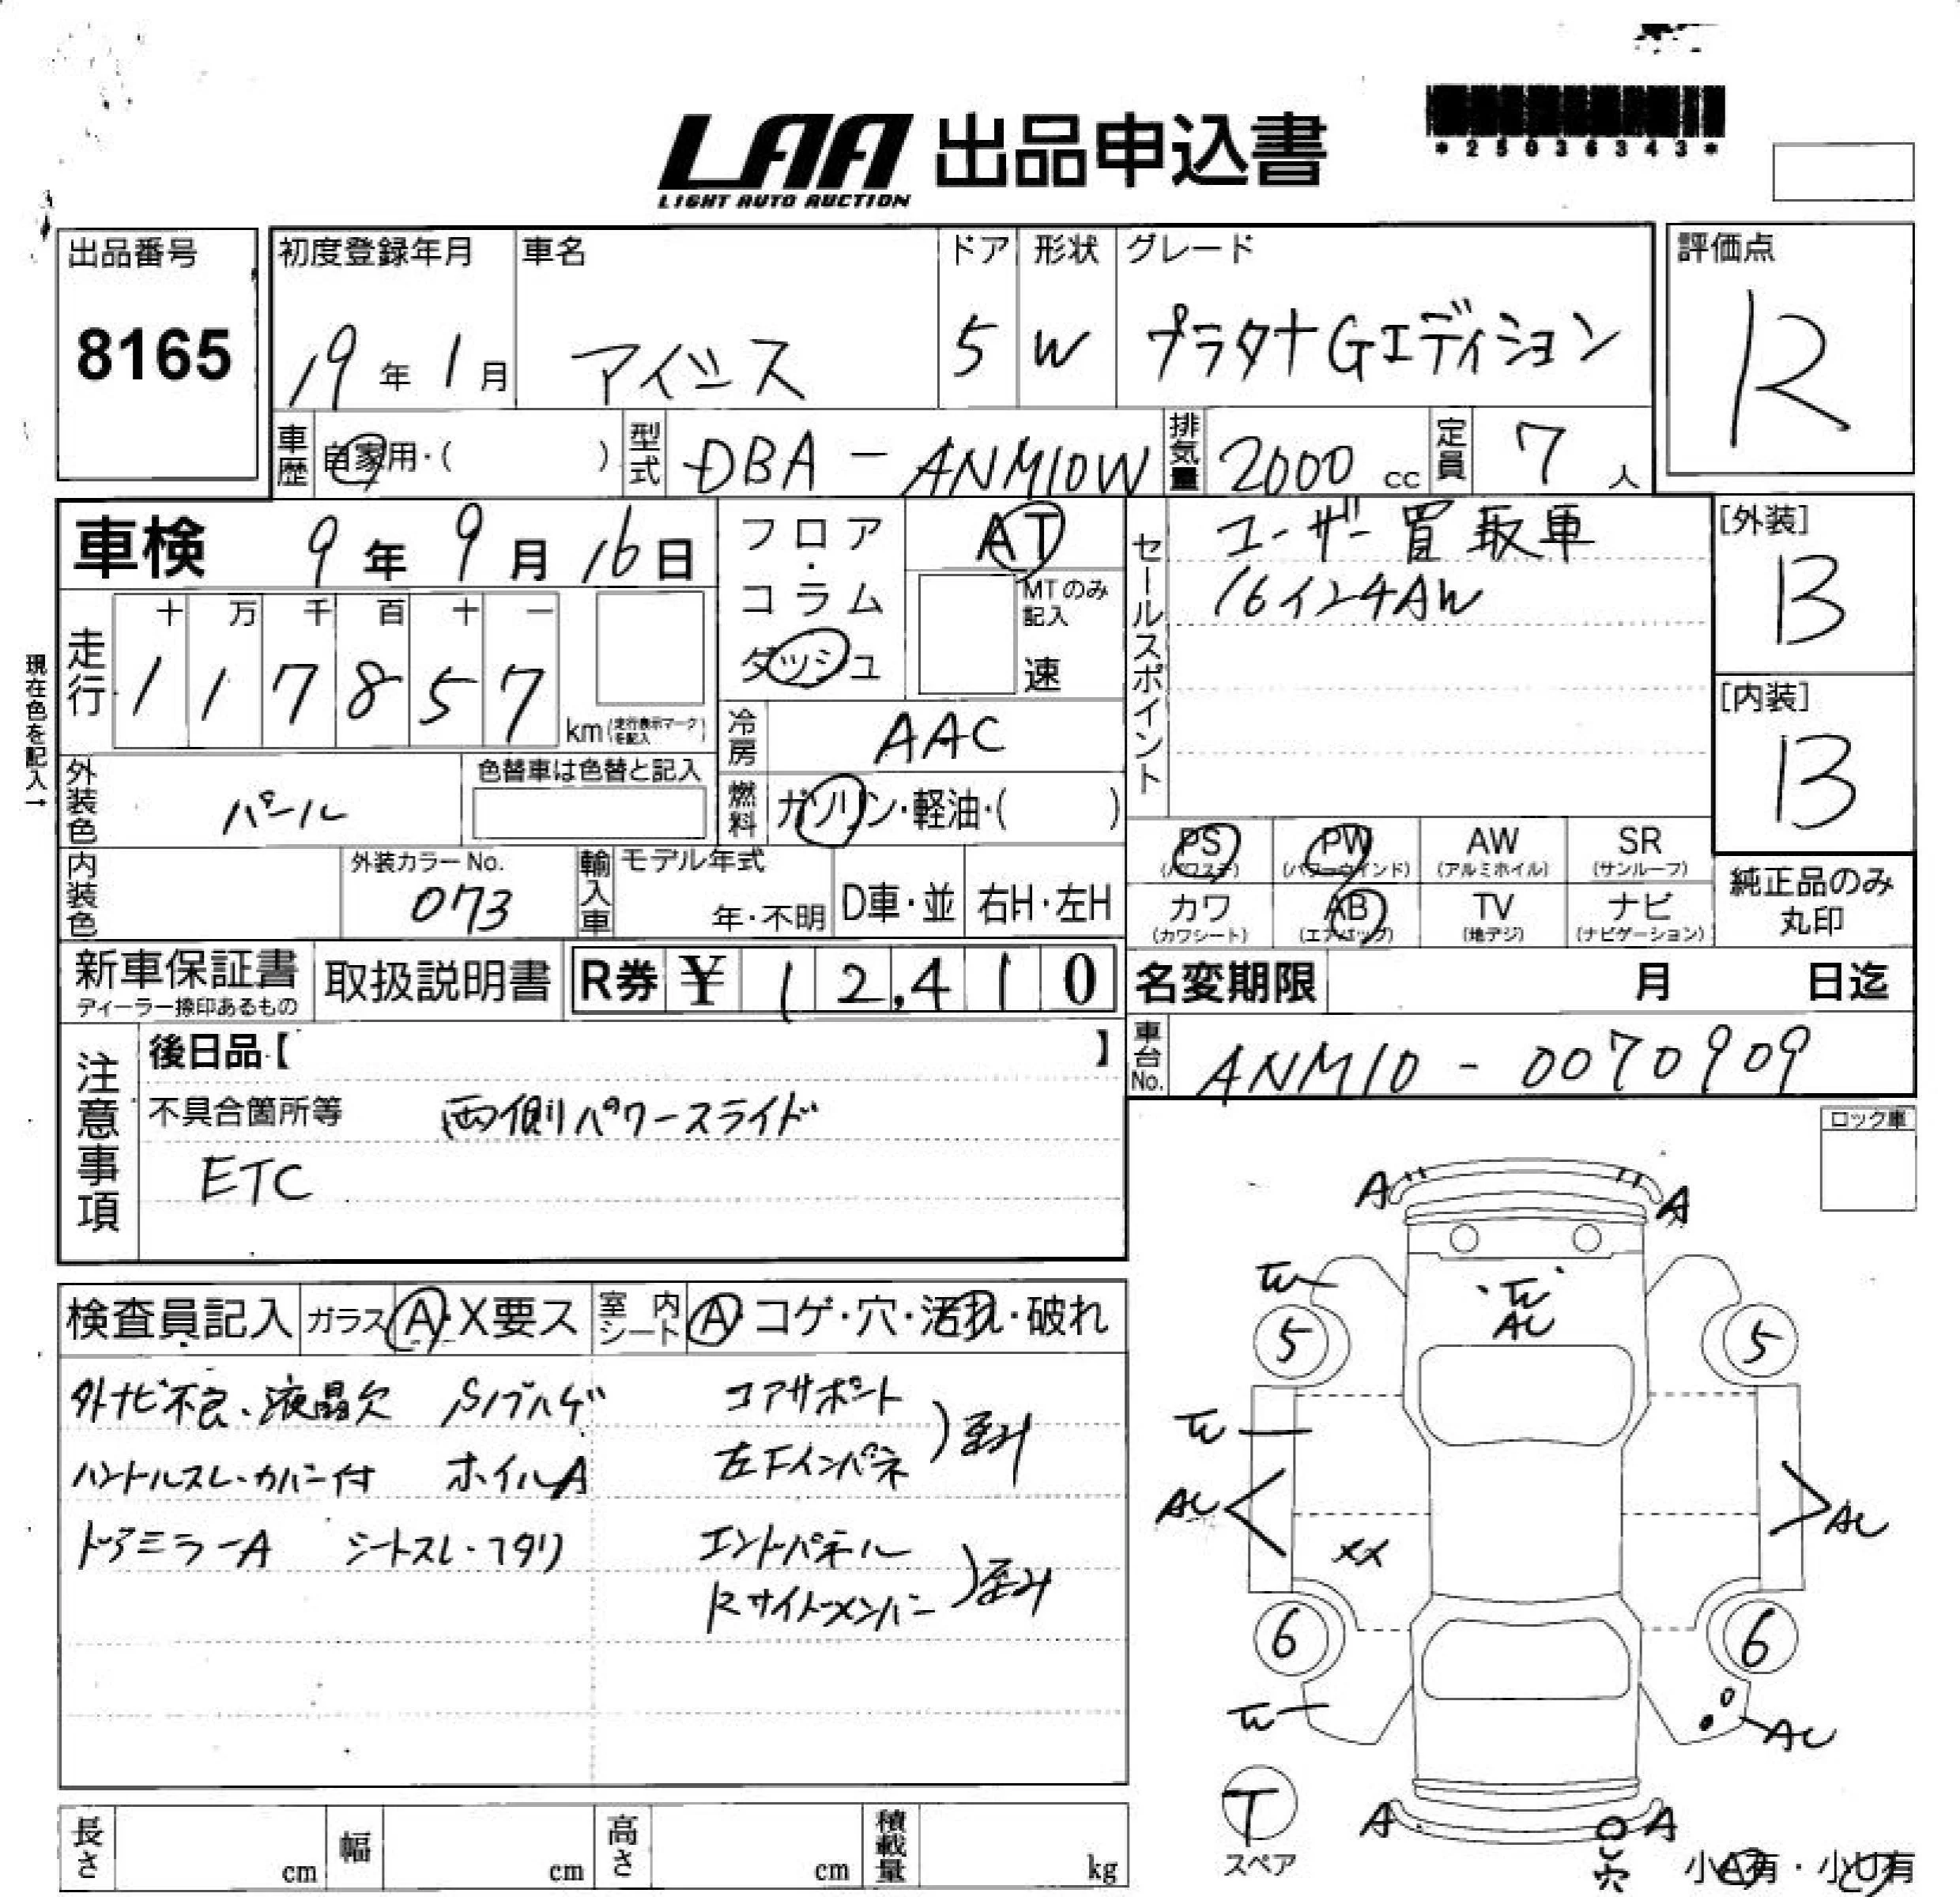 LAA 出品申込書
LIGHT AUTO AUCTION
*25036343*
出品番号
8165
初度登録年月
19年1月
車名
アイシス
ドア
5
形状
W
グレード
プラタナGエディション
評価点
R
車歴
自家用・( )
型式
DBA-ANM10W
排気量
2000cc
定員
7人
車検 9年9月16日
フロア・コラム
ダッシュ
AT
MTのみ記入
速
セールスポイント
ユーザー買取車
16インチAW
[外装]
B
[内装]
B
現在色を記入→
走行
十 万 千 百 十 一
1 1 7 8 5 7
km(走行表示マークを記入)
冷房
AAC
外装色
パール
色替車は色替と記入
燃料
ガソリン・軽油・( )
PS (パワステ)
PW (パワーウインド)
AW (アルミホイル)
SR (サンルーフ)
カワ (カワシート)
AB (エアバッグ)
TV (地デジ)
ナビ (ナビゲーション)
純正品のみ
丸印
内装色
外装カラーNo.
073
輸入車
モデル年式
年・不明
D車・並
右H・左H
新車保証書
ディーラー捺印あるもの
取扱説明書
R券 ¥ 12,410
名変期限 月 日迄
車台No.
ANM10-0070909
注意事項
後日品【 】
不具合箇所等 両側パワースライド
ETC
ロック車
検査員記入
ガラス A・X要ス
室内シート A・コゲ・穴・汚れ・破れ
外ナビ不良、液晶欠 Sノブハゲ
コアサポート
左Fインパネ
)歪み
ハンドルスレ・カバー付 ホイルA
ドアミラーA シートスレ・ヘタリ
エンドパネル
Rサイドメンバー
)歪み
A A
AC
5 5
AC AC
XX
6 6
AC
T
スペア
A A
穴
小A有・小U有
長さ cm
幅 cm
高さ cm
積載量 kg